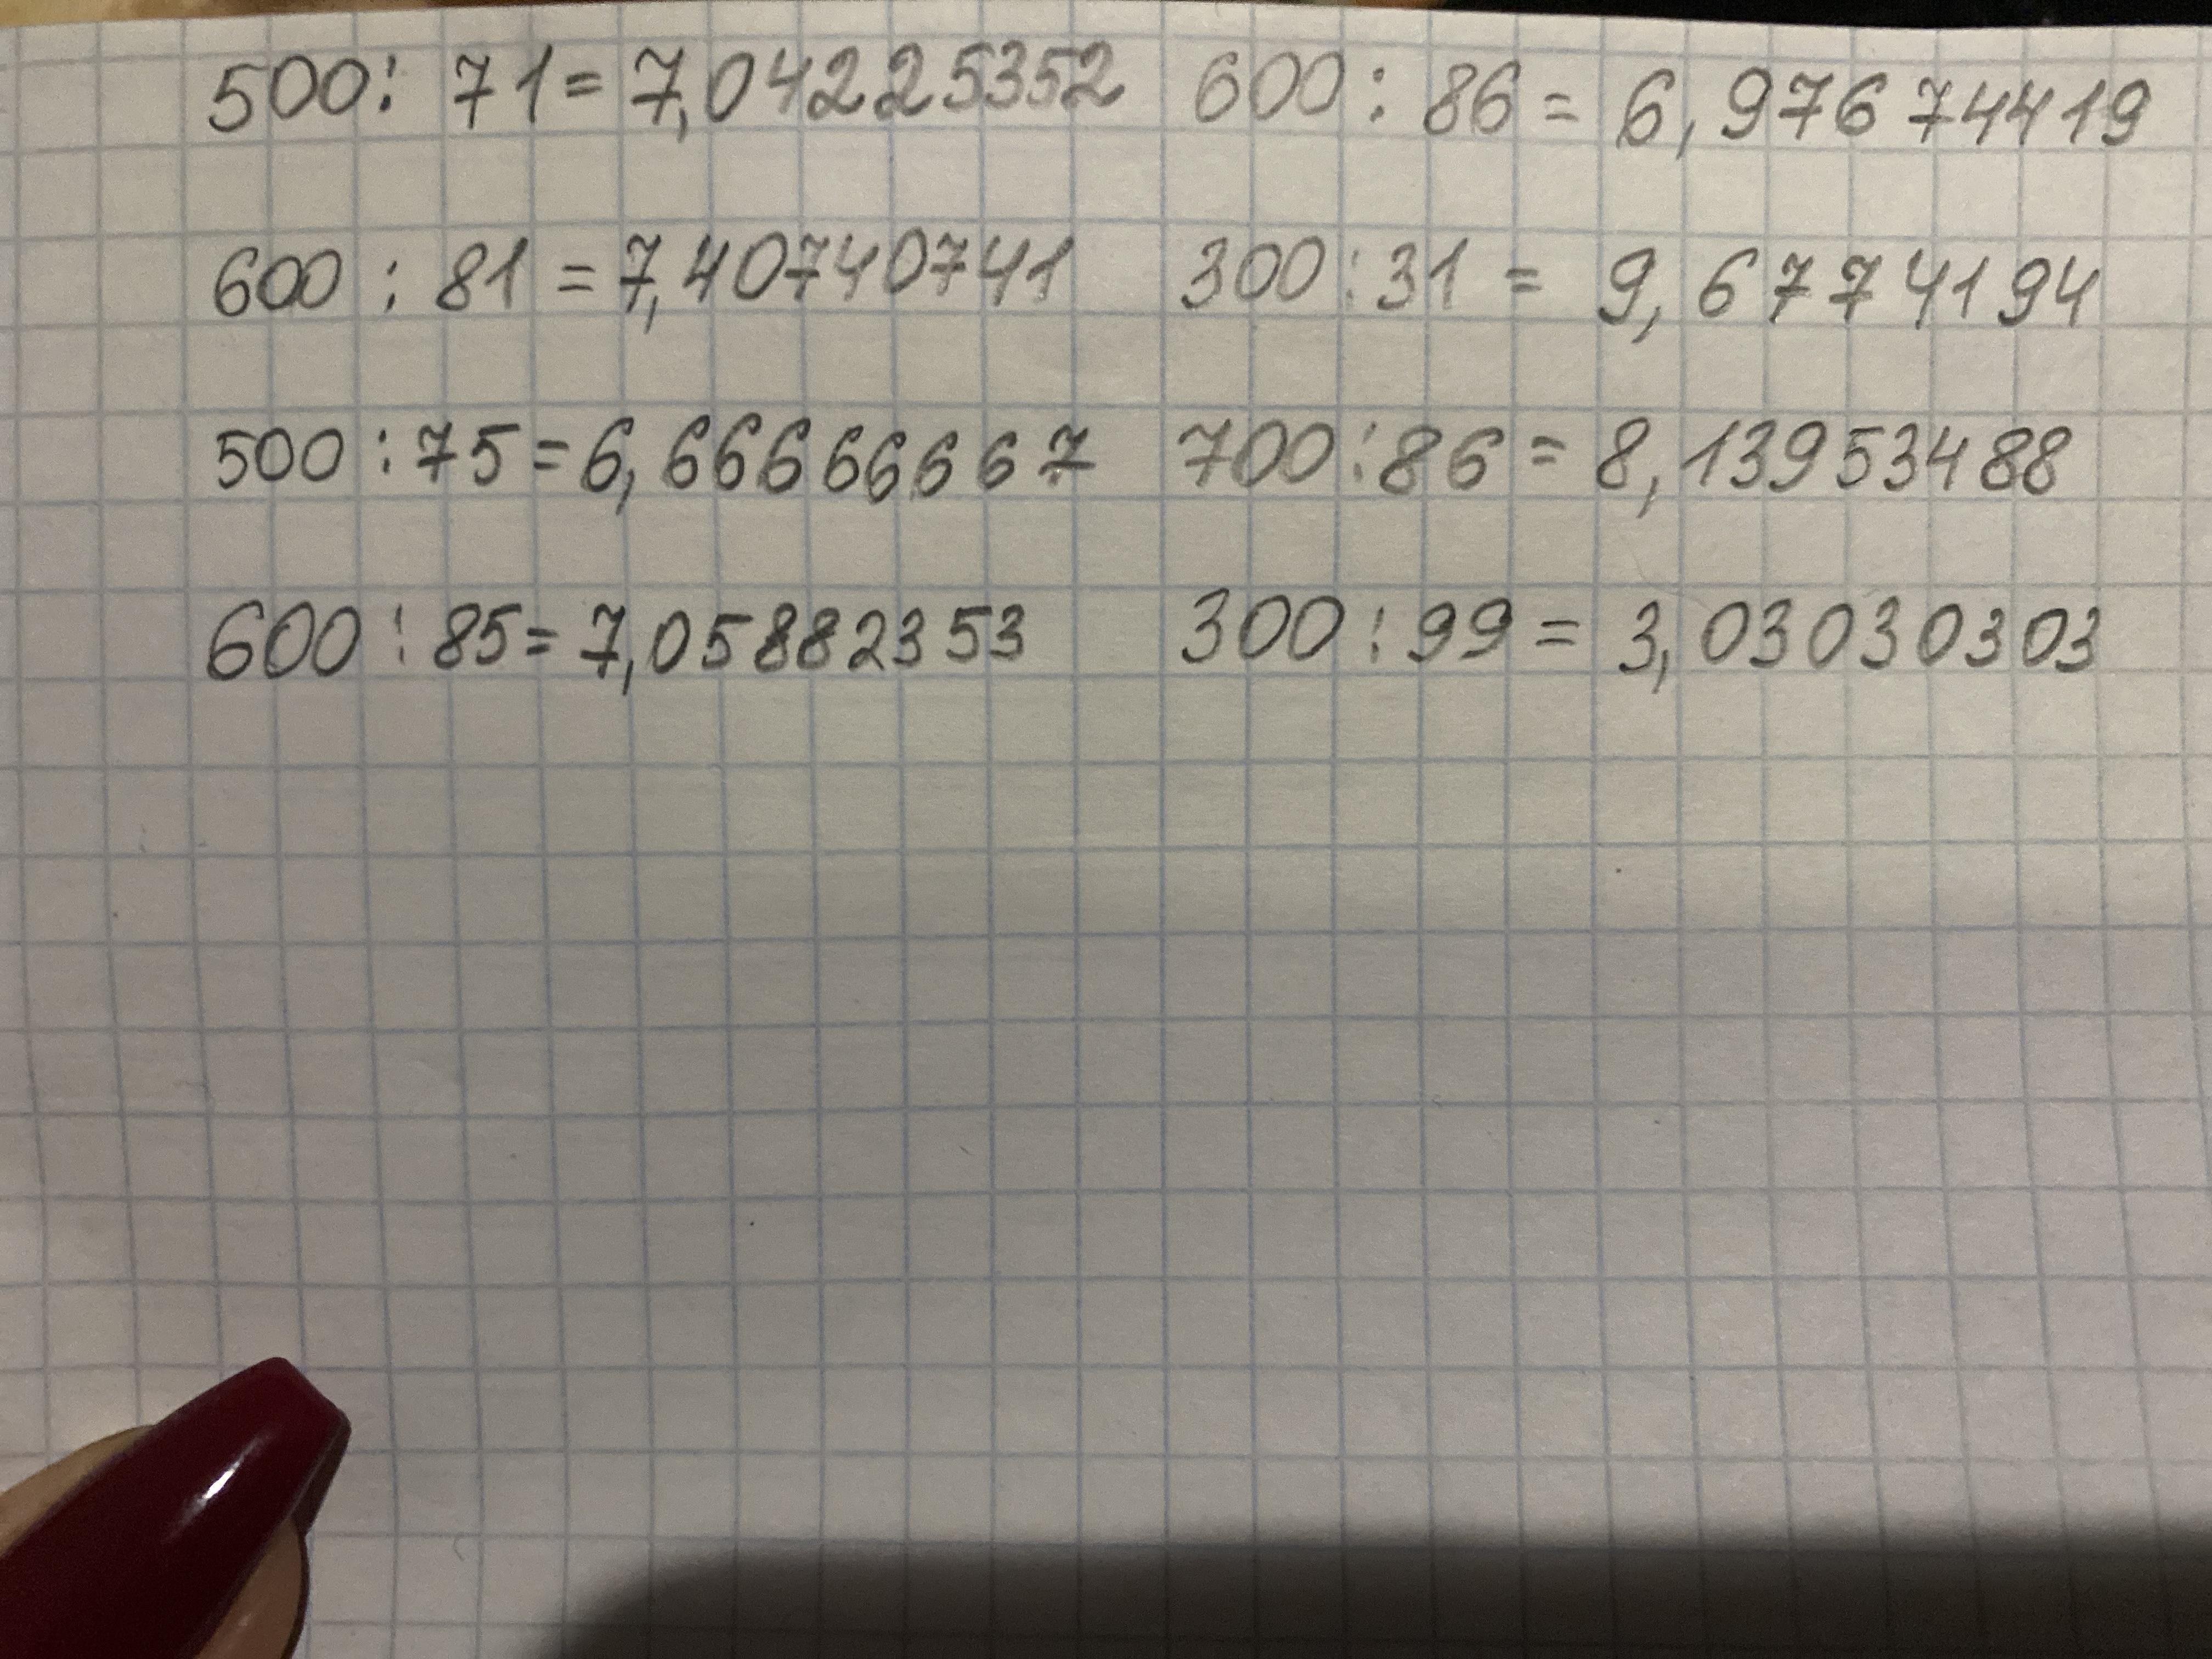 500 : 71 = 7,04225352 600 : 86 = 6,976744419
600 : 81 = 7,40740741 300 : 31 = 9,6774194
500 : 75 = 6,666666667 700 : 86 = 8,13953488
600 : 85 = 7,05882353 300 : 99 = 3,03030303